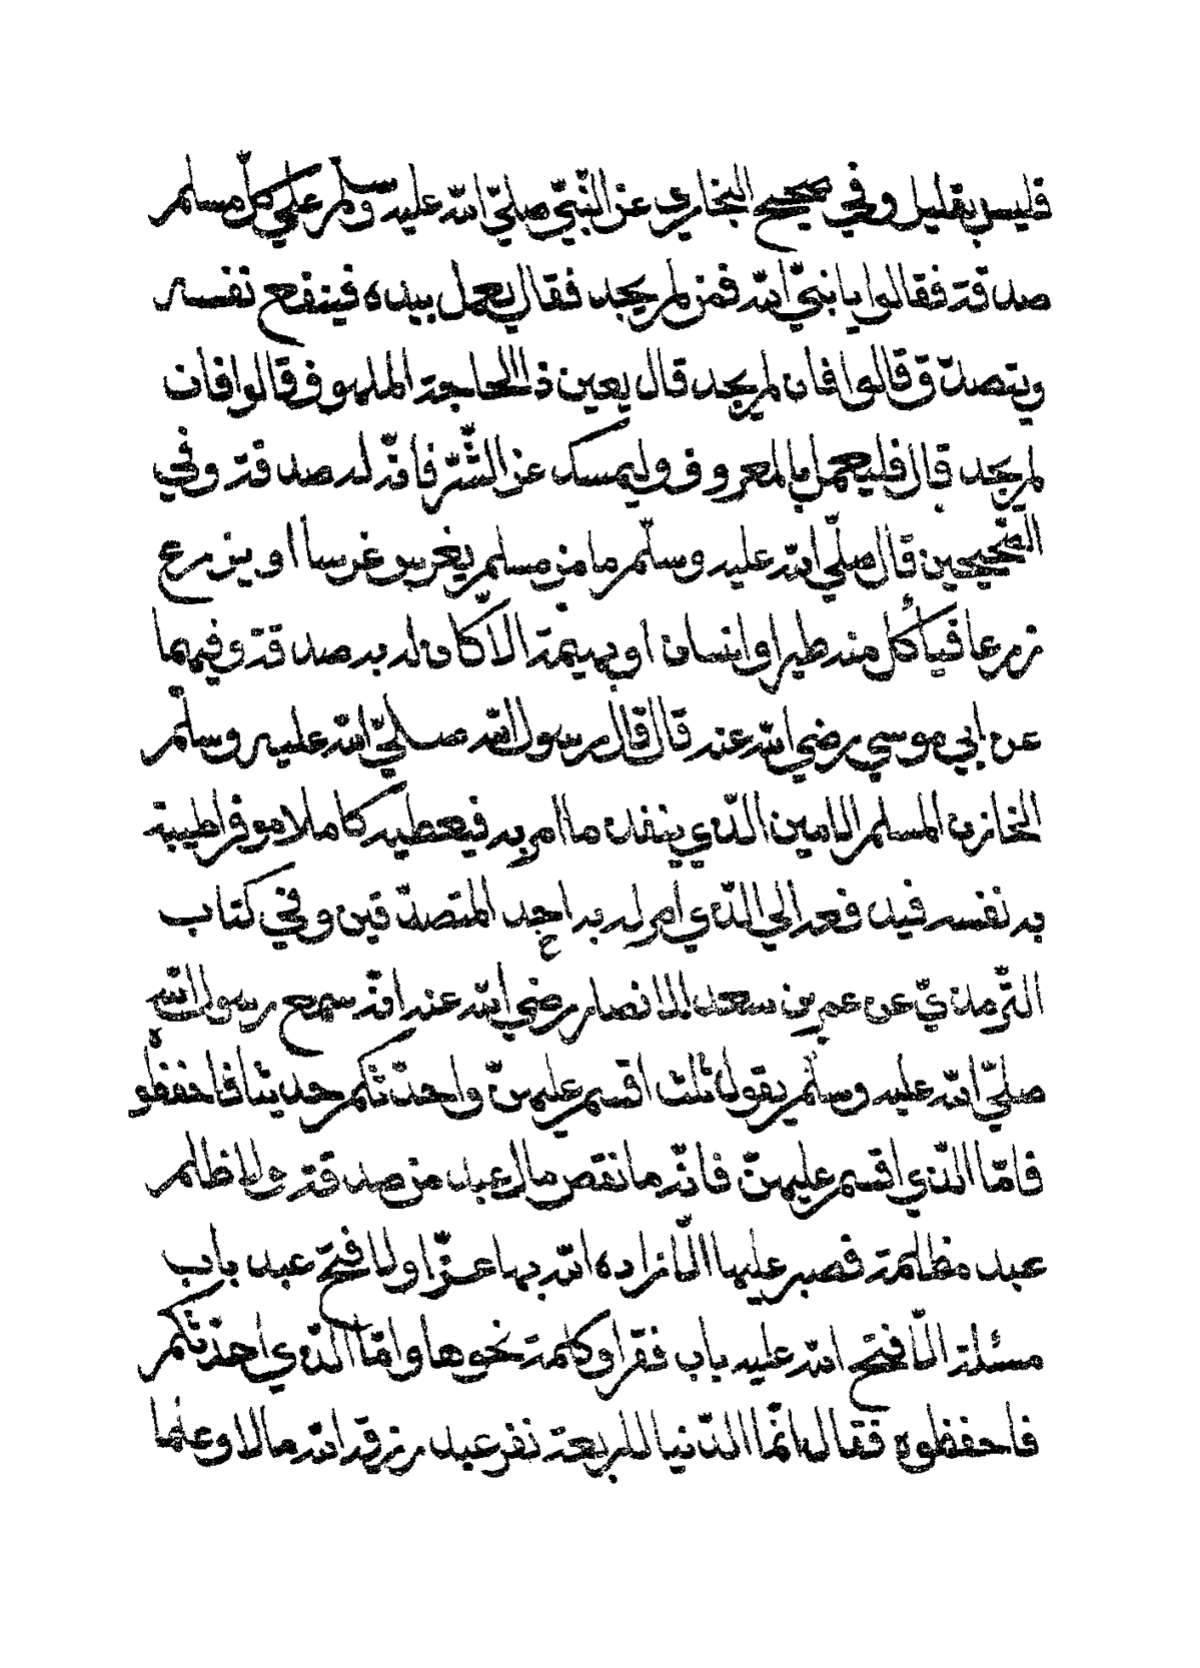 فليس بقليل وفي صحيح البخاري عن النّبيّ صليّ الله عليه وسلّم علي كلّ مسلم
صدقة فقالوا يا نبيّ الله فمن لم يجد فقال يعمل بيده فينفع نفسه
ويتصدّق قالوا فان لم يجد قال يعين ذا الحاجة الملهوف قالوا فان
لم يجد قال فليعمل بالمعروف وليمسك عن الشّرّ فانّه له صدقة وفي
الصّحيحين قال صلّي الله عليه وسلّم ما من مسلم يغرس غرسا او يزرع
زرعا فيأكل منه طير او انسان او بهيمة الاّ كان له به صدقة وفيهما
عن ابي موسي رضي الله عنه قال قال رسول الله صليّ الله عليه وسلّم
الخازن المسلم الامين الّذي ينفذ ما امر به فيعطيه كاملا موفرا طيبة
به نفسه فيدفعه الي الّذي امر له به احد المتصدّقين وفي كتاب
التّرمذيّ عن عمر بن سعد الانصار رضي الله عنه انّه سمع رسول الله
صليّ الله عليه وسلّم يقول ثلث اقسم عليهنّ واحدّثكم حديثا فاحفظو
فامّا الّذي اقسم عليهنّ فانّه ما نقص مال عبد من صدقة ولا ظلم
عبد مظلمة فصبر عليها الّا زاده الله بها عزّا ولا فتح عبد باب
مسئلة الّا فتح الله عليه باب فقر او كلمة نحوها وامّا الّذي احدّثكم
فاحفظوه فقال انّما الدّنيا لاربعة نفر عبد رزقه الله مالا وعلما